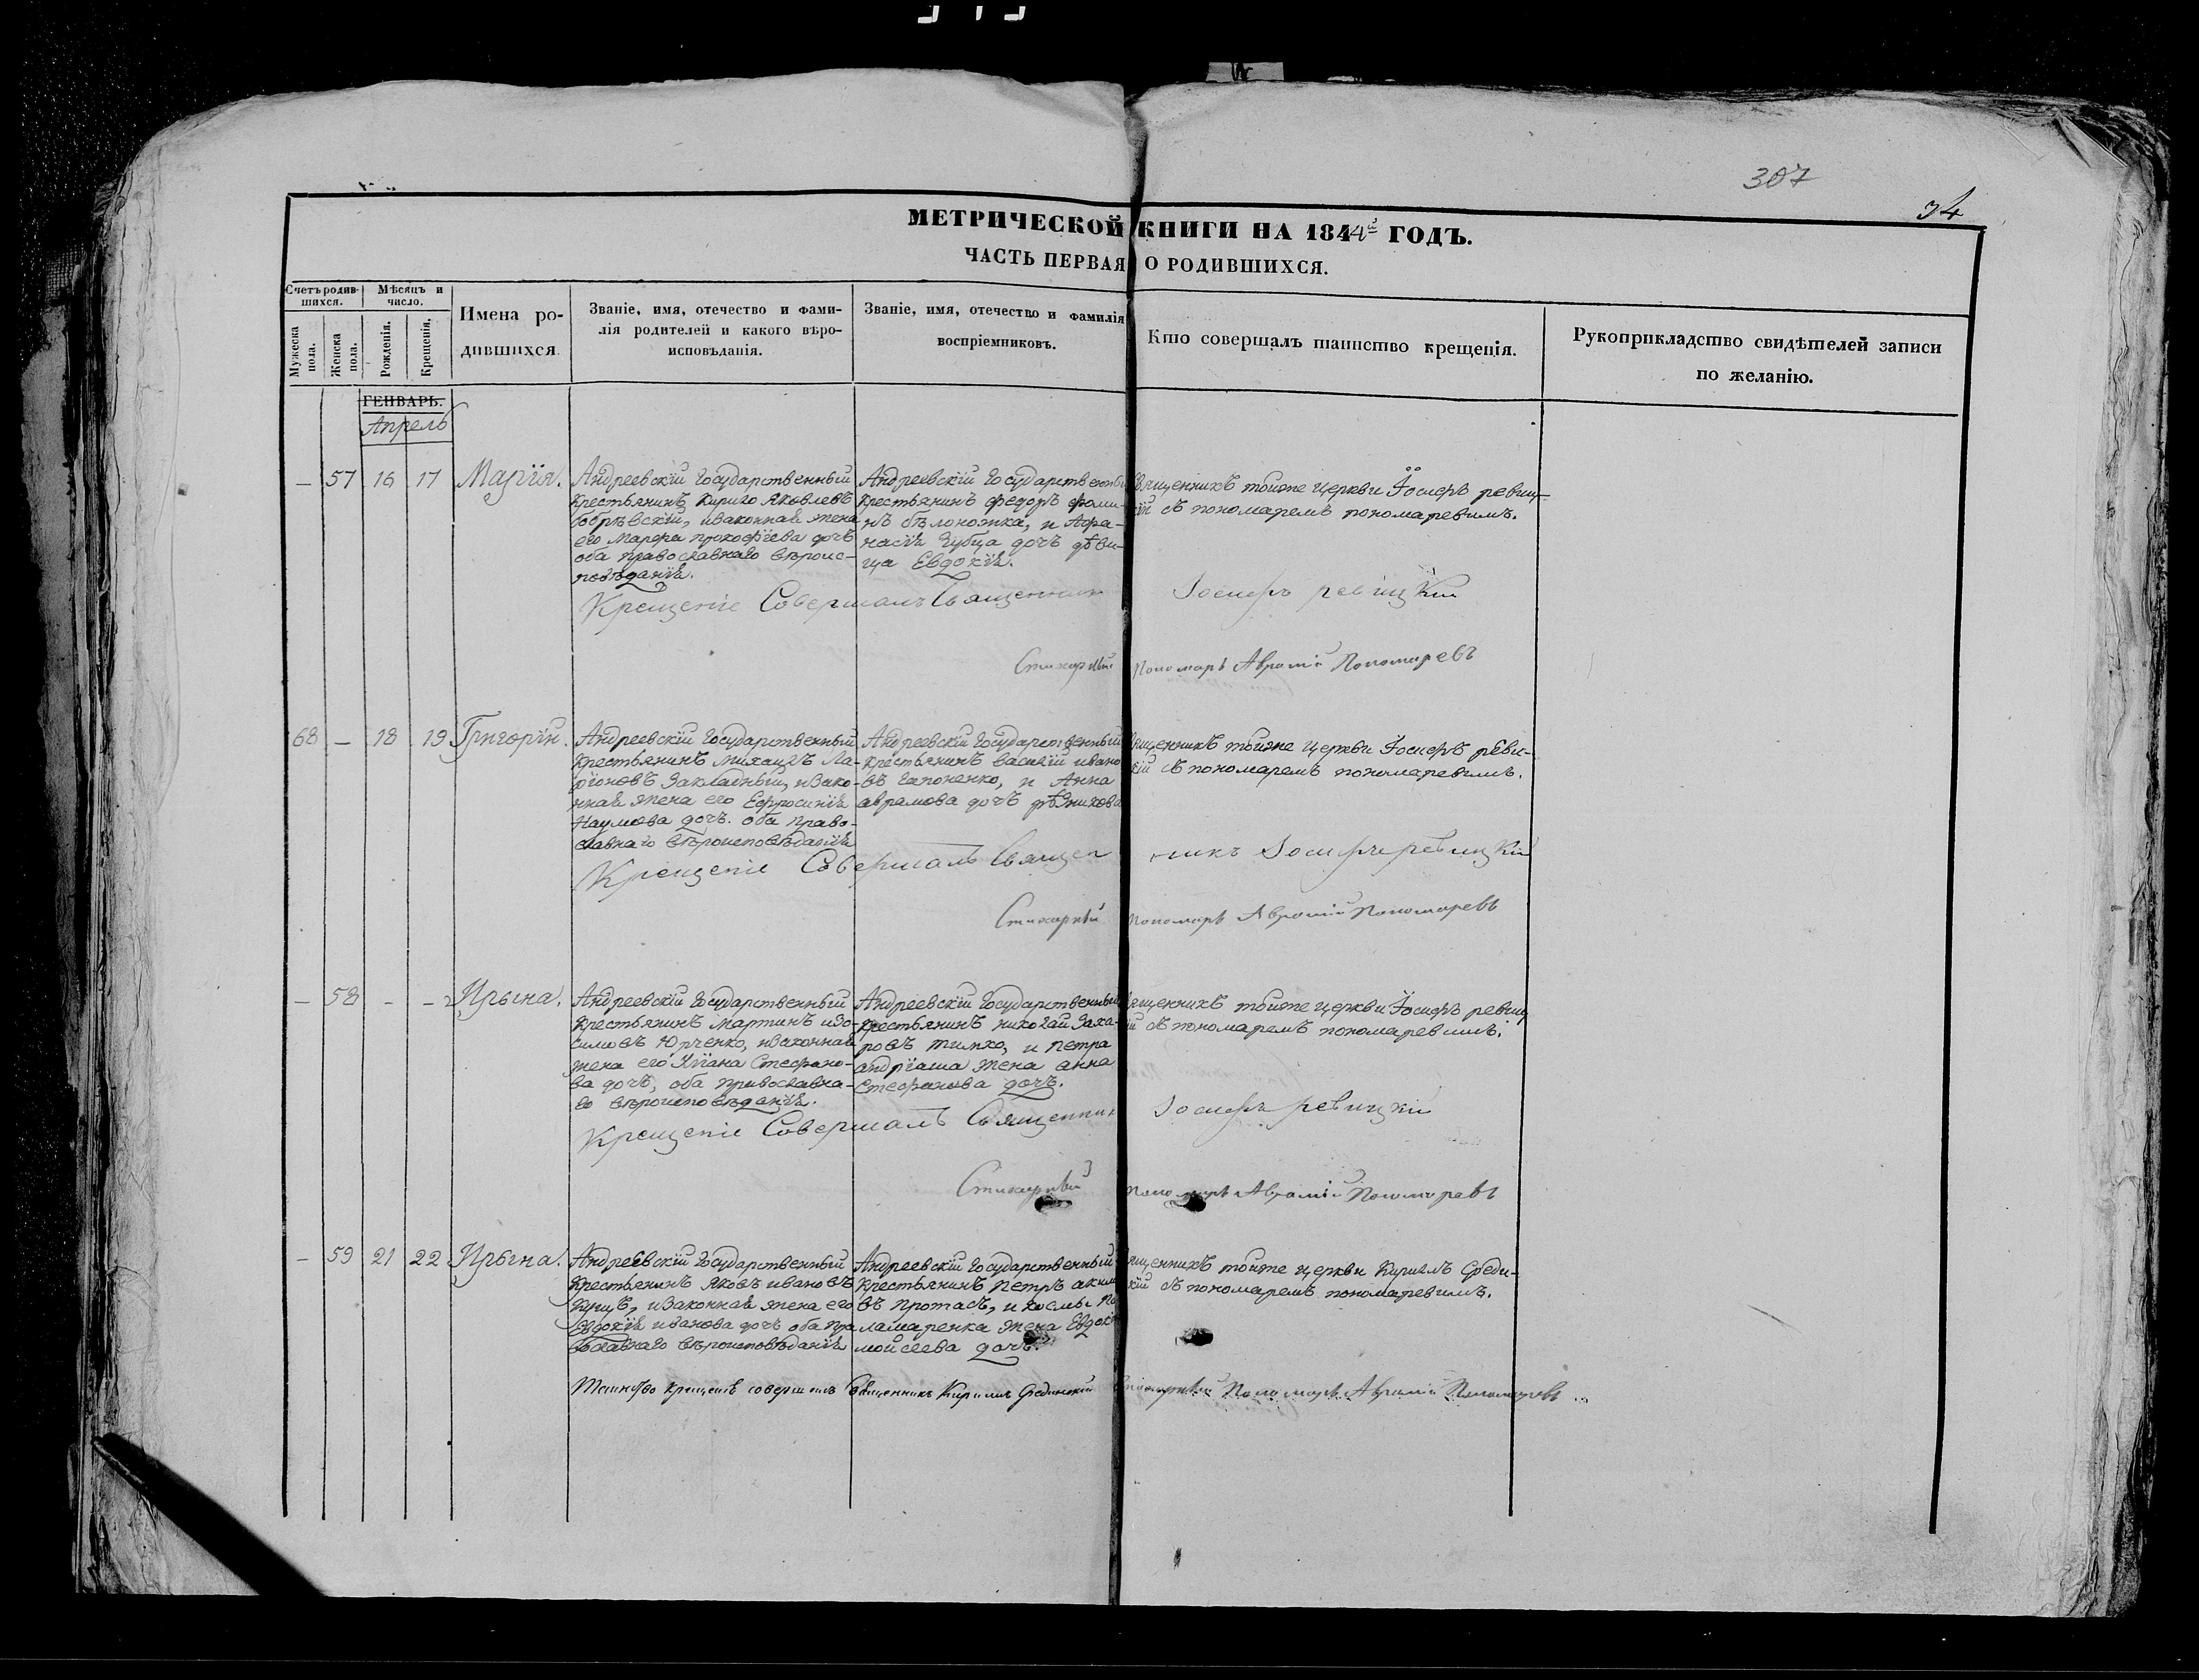 307
34
МЕТРИЧЕСКОЙ КНИГИ НА 1844й ГОДЪ.
ЧАСТЬ ПЕРВАЯ О РОДИВШИХСЯ.
Счетъ родив-
шихся.
Мѣсяцъ и
число.
Мужеска
пола.
Женска
пола.
Рожденія.
Крещенія.
Имена ро-
дившихся.
Званіе, имя, отечество и фами-
лія родителей и какого вѣро-
исповѣданія.
Званіе, имя, отечество и фамилія
воспріемниковъ.
Кто совершалъ таинство крещенія.
Рукоприкладство свидѣтелей записи
по желанію.
ГЕНВАРЬ.
Апрель
— 57 16 17 Марїя.
Андреевскїй Государственный
крестьянинъ Кирило Яковлевъ
изаконная жена
его Марфа прокофїева дочь
оба православнаго вѣроис-
повѣданїя.
Андреевскїй Государственный
крестьянинъ Федоръ фоми-
нъ бѣлоножка, и Афа-
насїя Губца дочь дѣви-
ца Евдокїя.
Священникъ тойже церкви Їосифъ ревиц-
кїй съ пономаремъ пономаревимъ.
Крещеніе Совершалъ Священникъ Іосифъ ревицкій
Стихарный Пономарь Аврамій Пономаревъ
68 — 18 19 Григорїй.
Андреевскїй Государственный
крестьянинъ Михаилъ Ла-
рїоновъ Закладный, изако-
нная жена его Ефросинїя
Наумова дочь. оба право-
славнаго вѣроисповѣданїя
Андреевскїй Государственный
крестьянинъ Василїй ивано
въ Гапоненко, и Анна
аврамова дочь
Священникъ тойже церкви Їосифъ реви-
кїй съ пономаремъ пономаревимъ.
Крещеніе Совершалъ Священникъ Іосифъ ревицкій
Стихарный Пономарь Аврамій Пономаревъ
— 58 - - Ирына.
Андреевскїй Государственный
крестьянинъ Мартинъ изо-
симовъ Юрченко, изаконная
жена его Улїана Стефано-
ва дочь, оба православна-
го вѣроисповѣданїя.
Андреевскїй Государственный
крестьянинъ николай Заха-
ровъ тимко, и петра
андрїаша жена анна
Стефанова дочь.
Священникъ тойже церкви Їосифъ ревиц
кїй съ пономаремъ пономаревимъ.
Крещеніе Совершалъ Священник Іосифъ ревицкій
Стихарный Пономарь Аврамій Пономаревъ
— 59 21 22 Ирына.
Андреевскїй Государственный
крестьянинъ Яковъ ивановъ
изаконная жена его
Евдокїя иванова дочь оба пра
вославнаго вѣроисповѣданїя
Андреевскїй Государственный
крестьянинъ Петръ аким
въ протасъ, и космы по
ламаренка жена Евдокїя
мойсеева дочь.
Священникъ тойже церкви Кирилъ Среди-
скїй съ пономаремъ пономаревимъ.
Таинство крещенія совершилъ Священникъ Кирилъ Срединскій Стихарный Пономарь Аврамій Пономаревъ